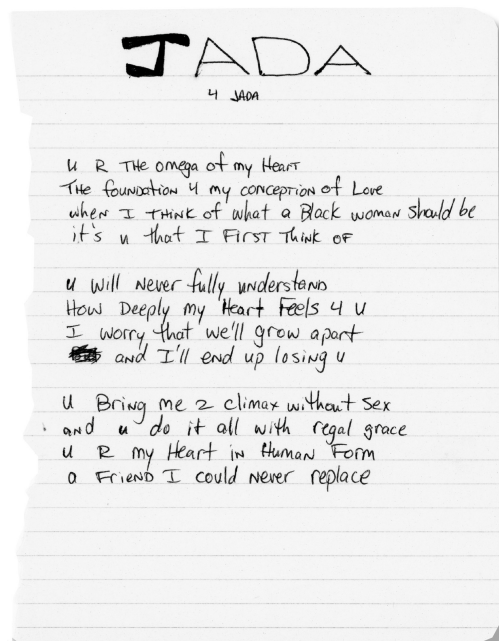 JADA
4 JADA
u R THE omega of my HeArt
THe founDAtion 4 my conception of Love
when I THiNK of what a Black woman should be
it's u that I FIRST THINK OF
u will Never fully understanD
How Deeply my Heart Feels 4 u
I worry that we'll grow apart
and I'll end up losing u
u Bring me 2 climax without sex
and u do it all with regal grace
u R my Heart in Human Form
a FrienD I could never replace